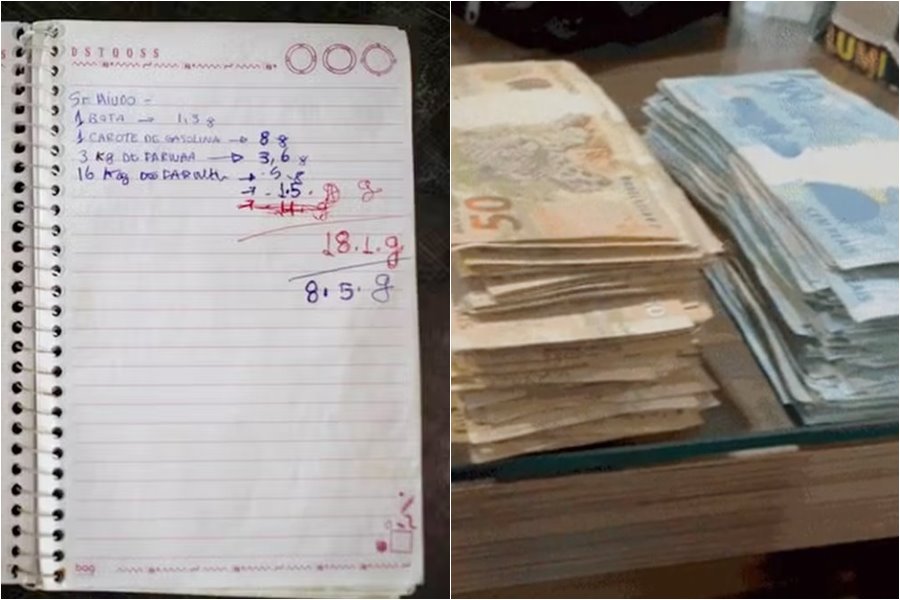 DSTQQSS
Sr MIUDO -
1 BOTA → 1,3 g
1 CAROTE DE GASOLINA → 8 g
3 Kg DE FARINHA → 3,6 g
16 Kg → 5 g
→ -1.5. g
→ -11. g
18.1.g
8.5.g
bag
50